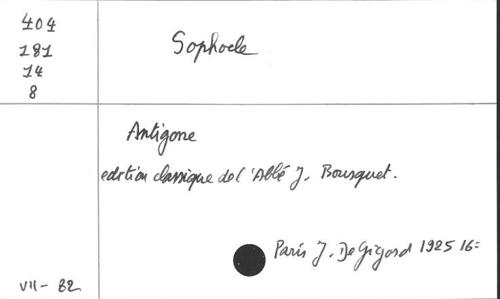 404
181
14
8
Sophocle
Antigone
edition classique de l'Abbé J. Bousquet.
Paris J. De Gigord 1925 16=
VII - 82